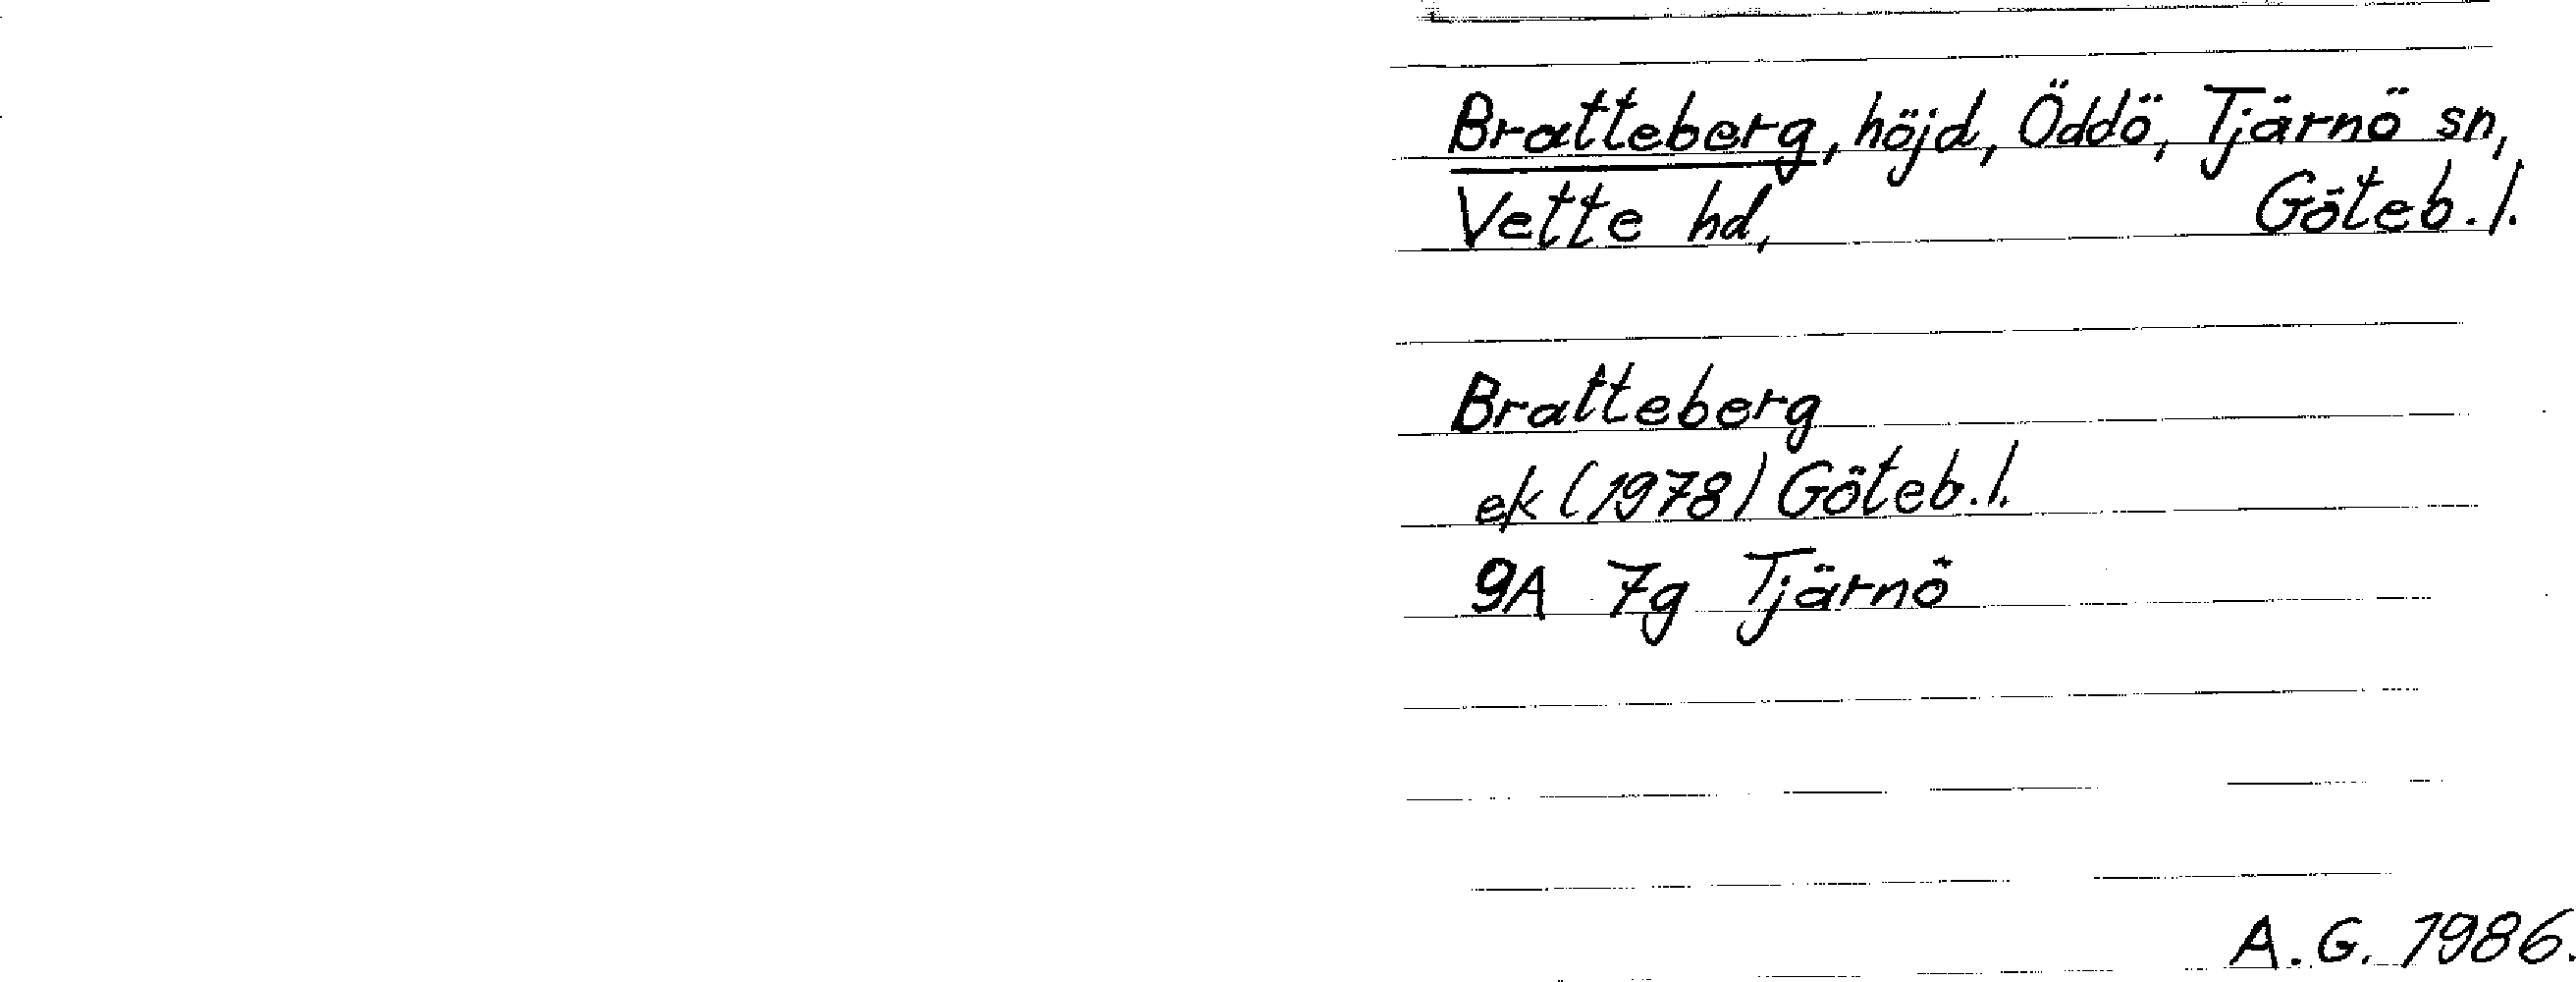 Bratteberg, höjd, Öddö, Tjärnö sn,
Vette hd, Göteb. l.
Bratteberg
ek (1978) Göteb. l.
9A 7g Tjärnö
A. G. 1986.